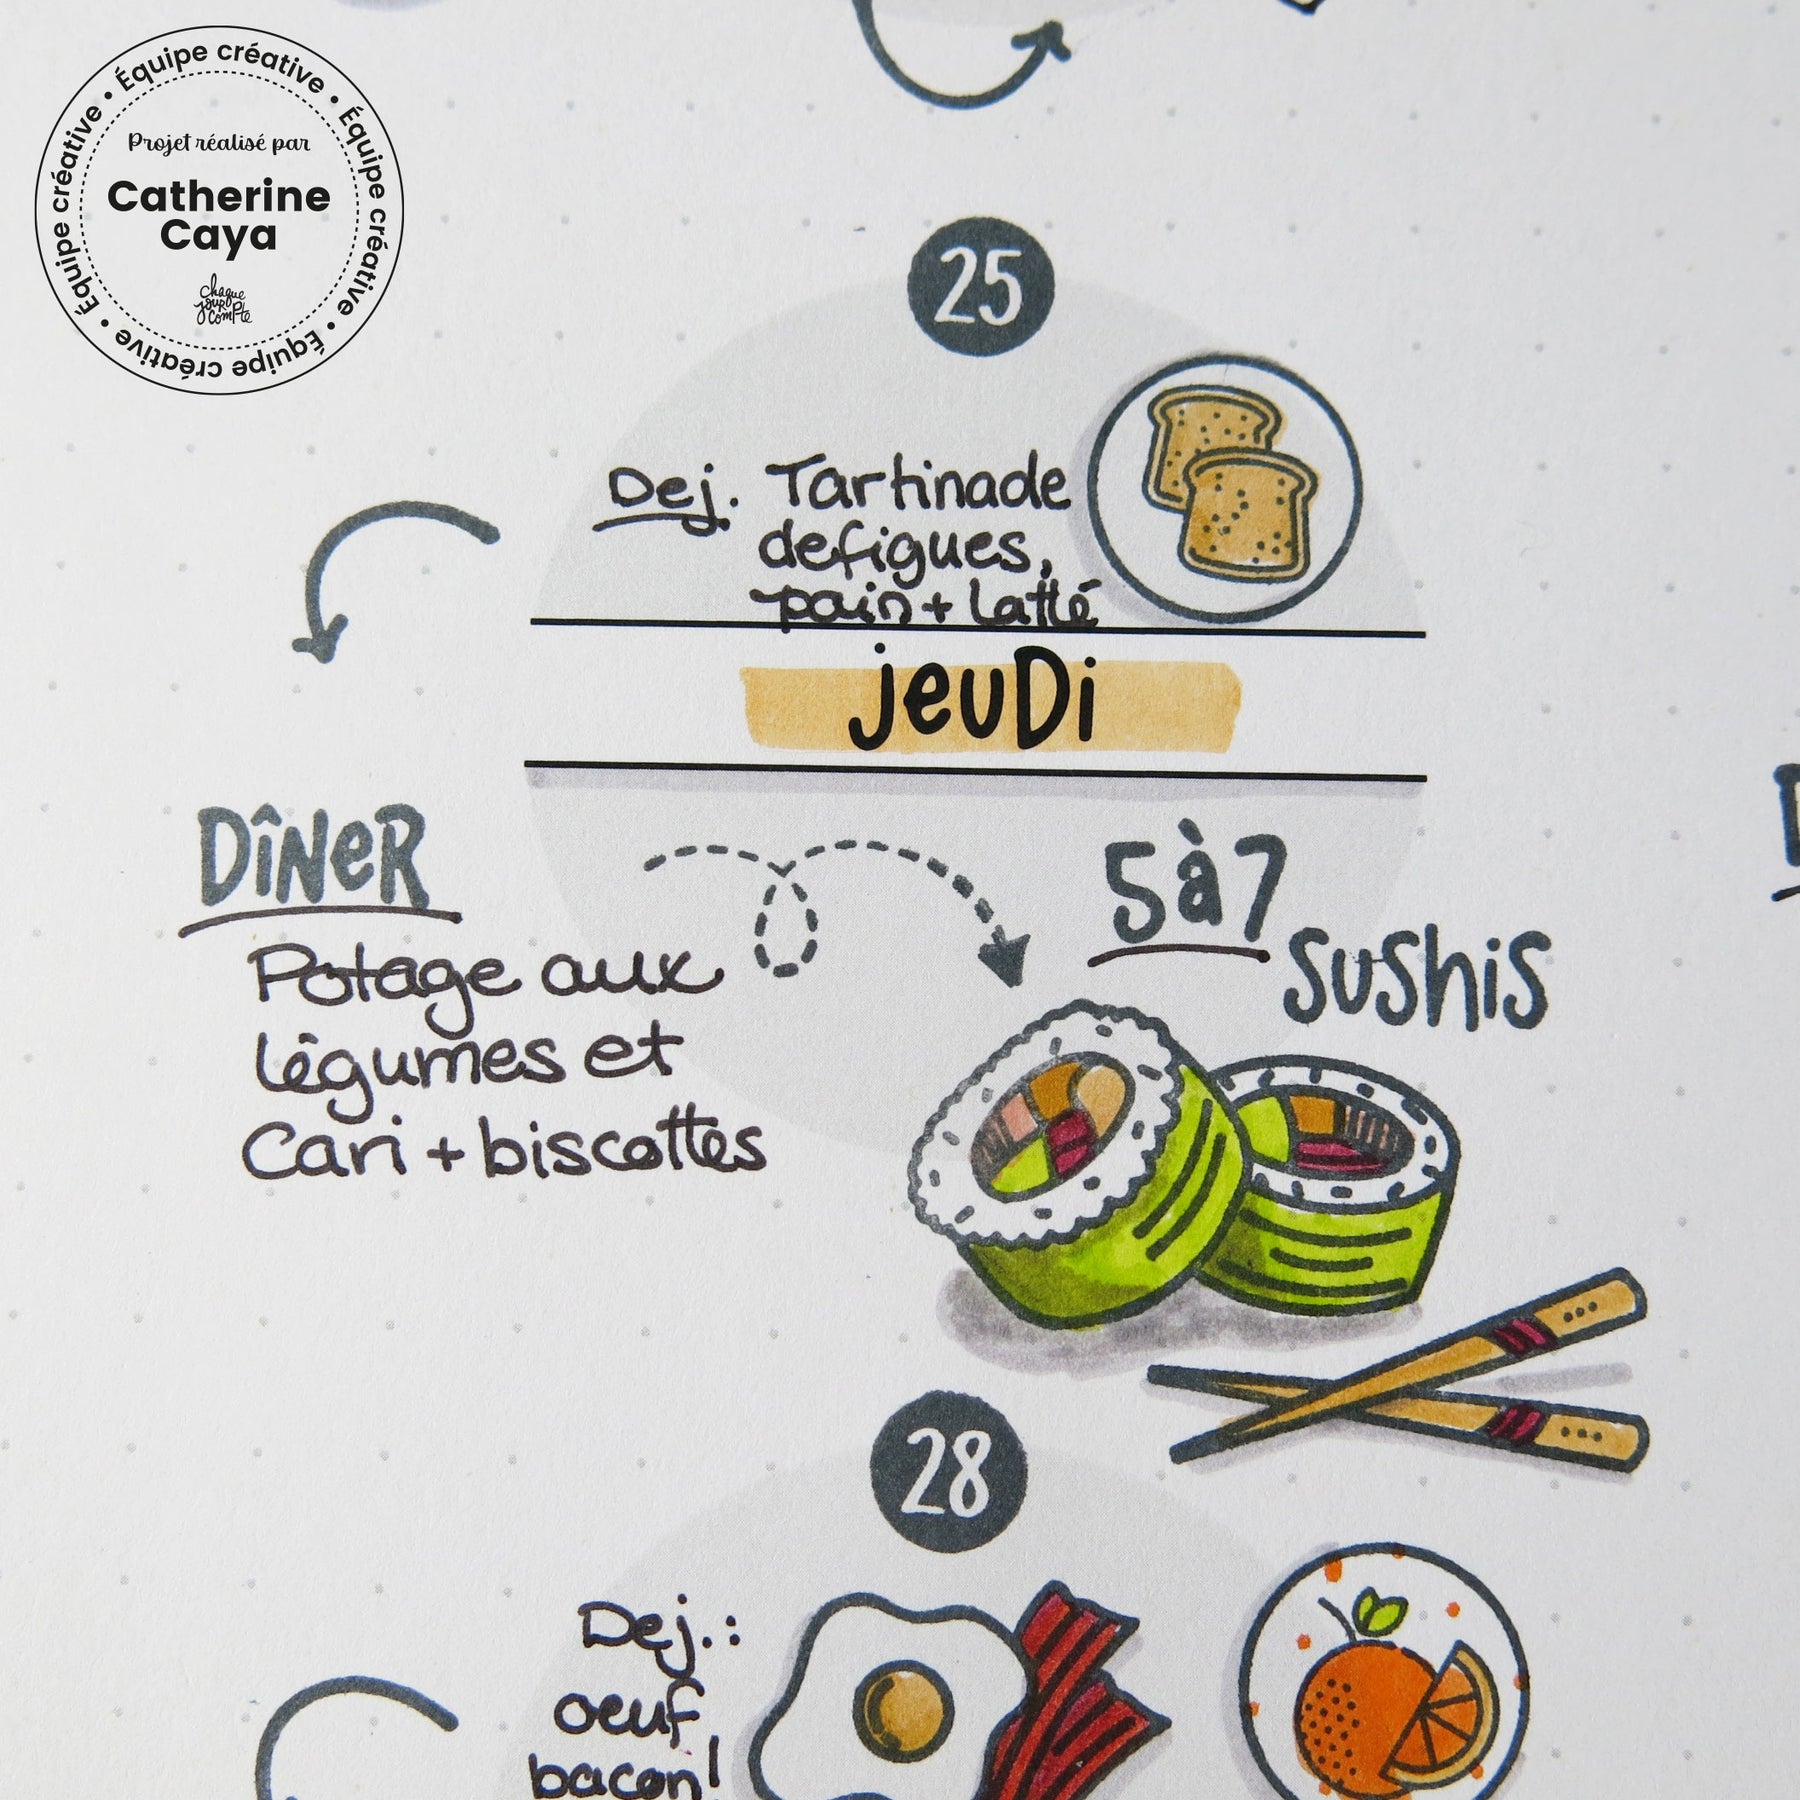 Équipe créative • Équipe créative • Équipe créative • Équipe créative • Équipe créative •
Projet réalisé par
Catherine
Caya
chaque
jour
compte
25
Dej. Tartinade
de figues,
pain + latté
jeuDi
DÎNeR
5 à 7
sushis
Potage aux
légumes et
Cari + biscottes
28
Dej.:
oeuf,
bacon!